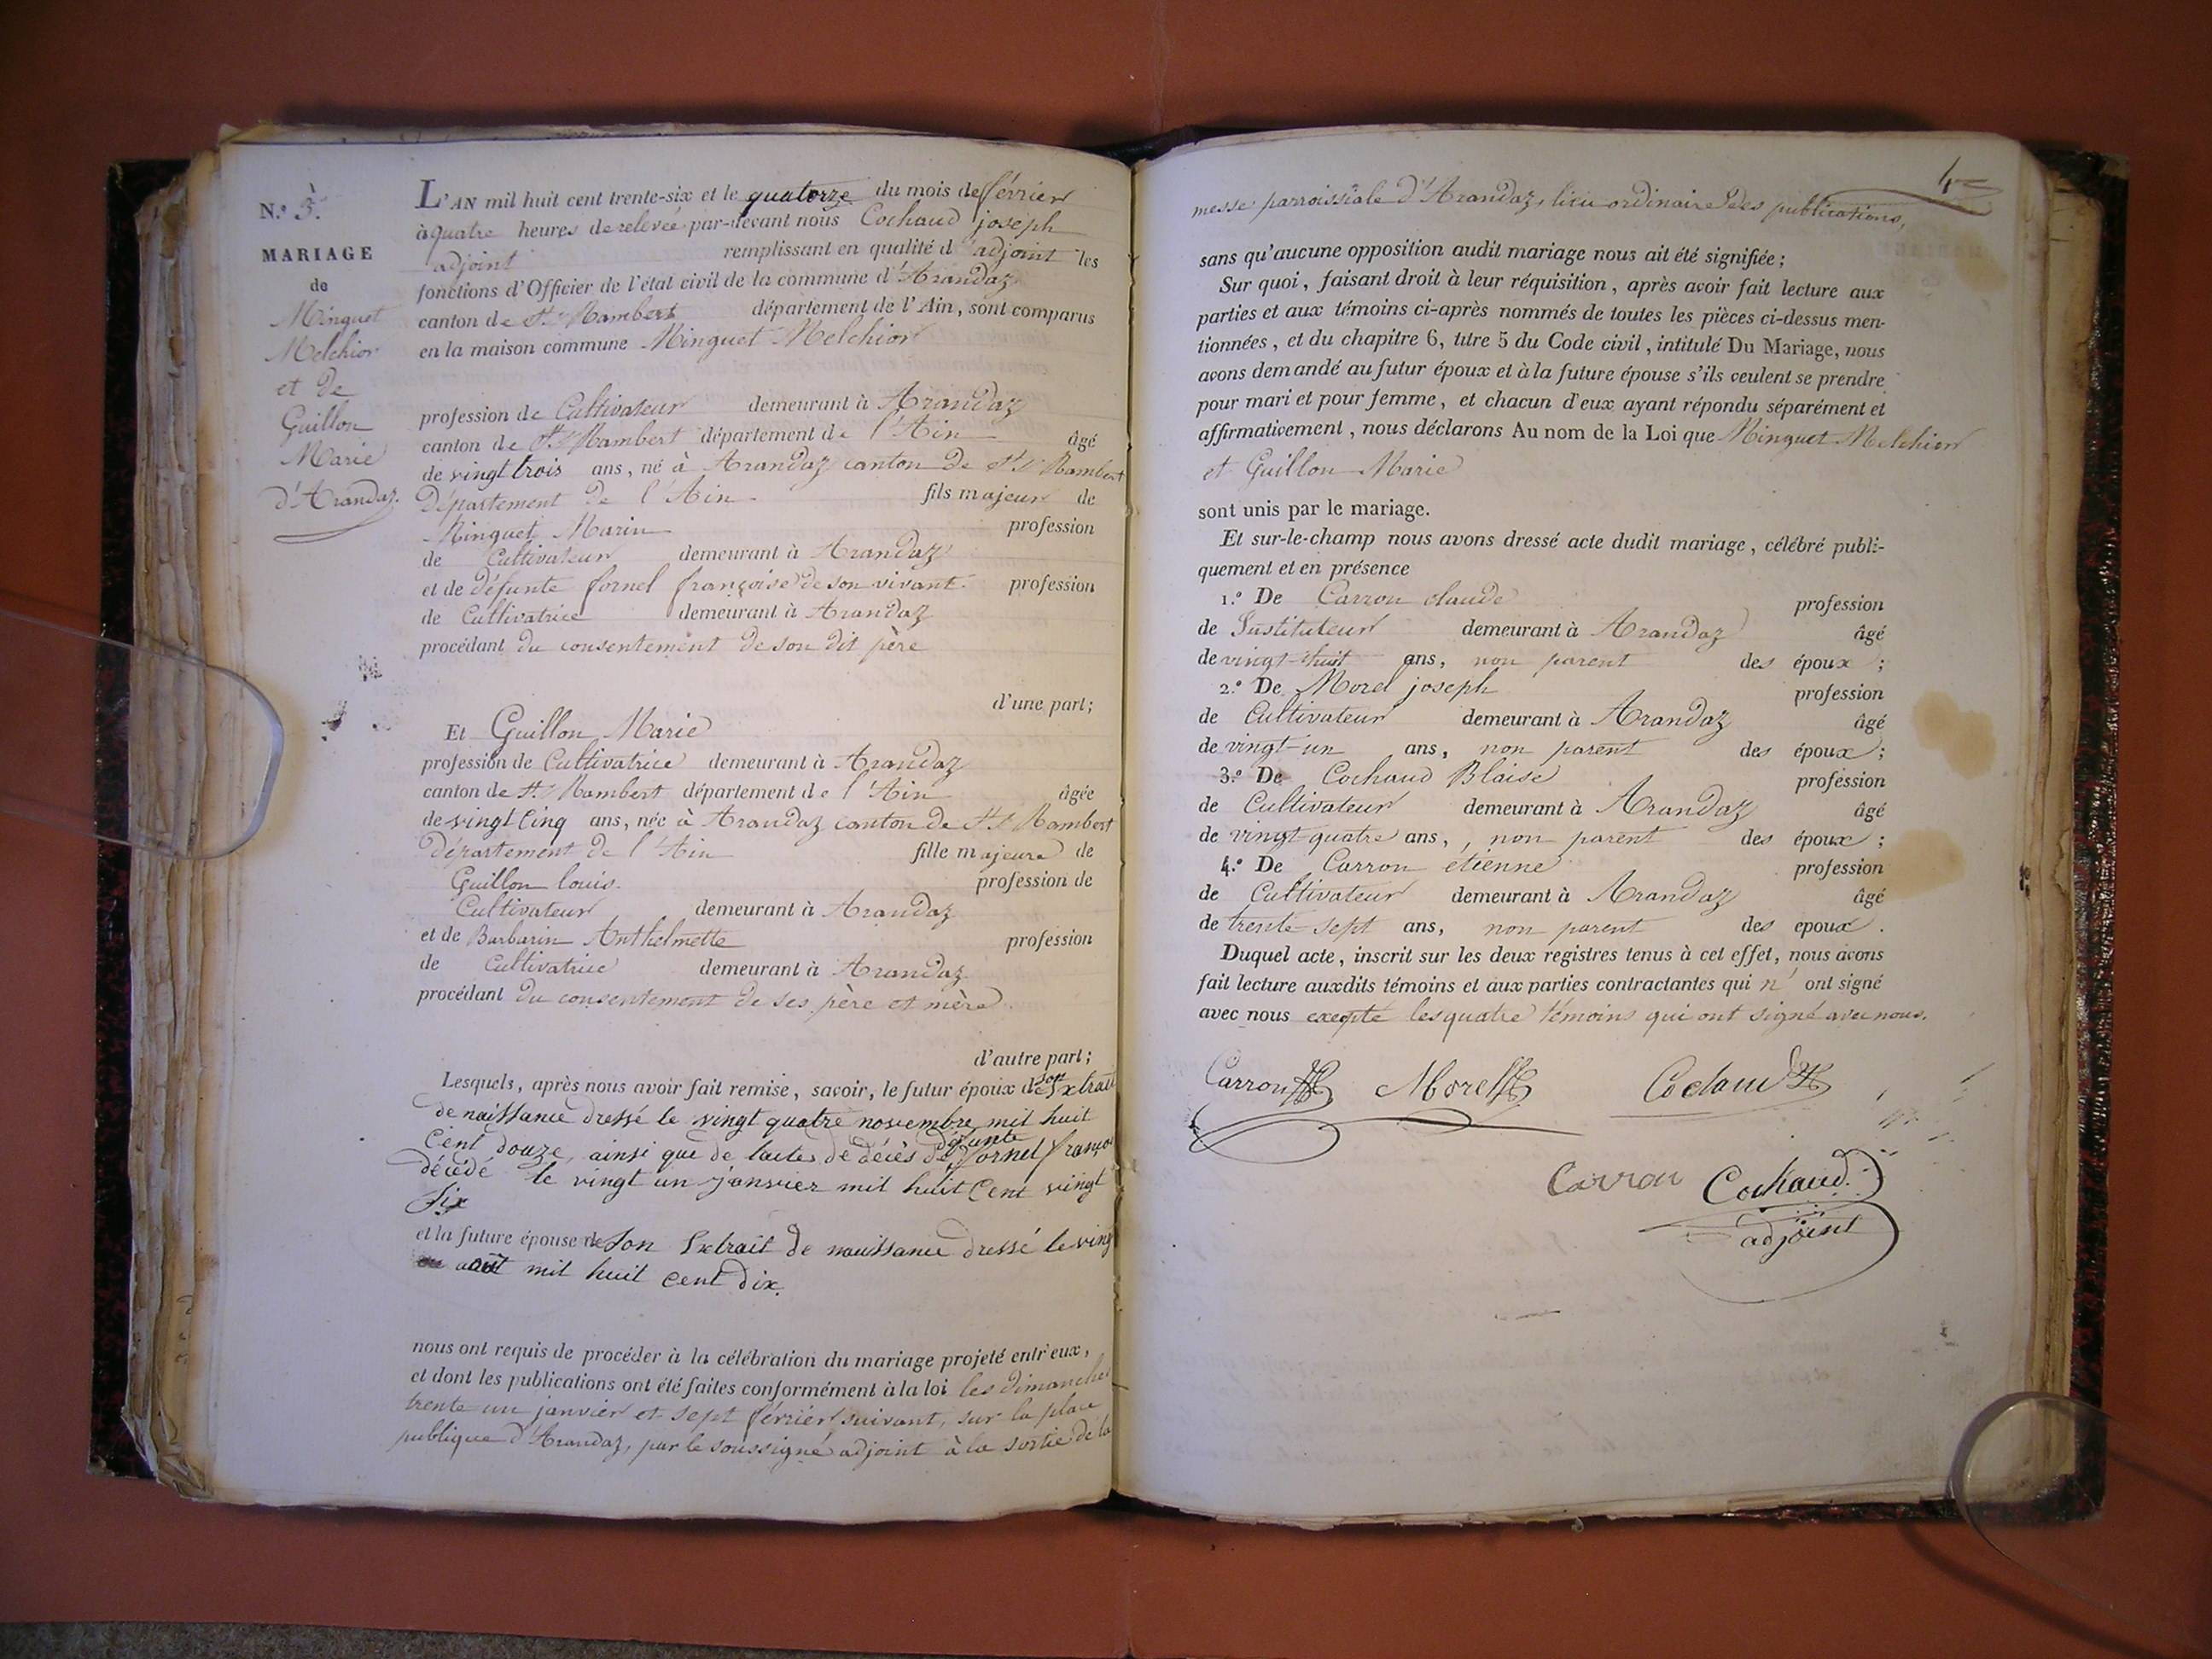 N.º 3.
MARIAGE
de
Minguet
Melchior
et de
Guillon
Marie
d'Arandaz.
L'AN mil huit cent trente-six et le quatorze du mois de février
à quatre heures de relevée par-devant nous Cochaud joseph
adjoint remplissant en qualité d'adjoint les
fonctions d'Officier de l'état civil de la commune d'Arandaz
canton de St. Rambert département de l'Ain, sont comparus
en la maison commune Minguet Melchior
profession de Cultivateur demeurant à Arandaz
canton de St. Rambert département de l'Ain âgé
de vingt trois ans, né à Arandaz canton de St. Rambert
Département de l'Ain fils majeur de
Minguet Marin profession
de Cultivateur demeurant à Arandaz
et de défunte fornel françoise de son vivant profession
de Cultivatrice demeurant à Arandaz
procédant du consentement de son dit père
d'une part;
Et Guillon Marie
profession de Cultivatrice demeurant à Arandaz
canton de St. Rambert département de l'Ain âgée
de vingt Cinq ans, née à Arandaz canton de St. Rambert
Département de l'Ain fille majeure de
Guillon louis. profession de
Cultivateur demeurant à Arandaz
et de Barbarin Anthelmette profession
de Cultivatrice demeurant à Arandaz
procédant du consentement de ses père et mère.
d'autre part;
Lesquels, après nous avoir fait remise, savoir, le futur époux de son Extrait
de naissance dressé le vingt quatre novembre mil huit
Cent douze, ainsi que de l'acte de décès de défunte fornel françoi
décédé le vingt un janvier mil huit Cent vingt
Six
et la future épouse de Son Extrait de naissance dressé le vingt
août mil huit cent dix.
nous ont requis de procéder à la célébration du mariage projeté entr'eux,
et dont les publications ont été faites conformément à la loi les dimanches
trente un janvier et sept février suivant, sur la place
publique d'Arandaz, par le soussigné adjoint à la sortie de la
4
messe parroissiale d'Arandaz, lieu ordinaire des publications,
sans qu'aucune opposition audit mariage nous ait été signifiée;
Sur quoi, faisant droit à leur réquisition, après avoir fait lecture aux
parties et aux témoins ci-après nommés de toutes les pièces ci-dessus men-
tionnées, et du chapitre 6, titre 5 du Code civil, intitulé Du Mariage, nous
avons demandé au futur époux et à la future épouse s'ils veulent se prendre
pour mari et pour femme, et chacun d'eux ayant répondu séparément et
affirmativement, nous déclarons Au nom de la Loi que Minguet Melchior
et Guillon Marie
sont unis par le mariage.
Et sur-le-champ nous avons dressé acte dudit mariage, célébré publi-
quement et en présence
1.º De Carron claude profession
de Instituteur demeurant à Arandaz âgé
de vingt-huit ans, non parent des époux;
2.º De Morel joseph profession
de Cultivateur demeurant à Arandaz âgé
de vingt-un ans, non parent des époux;
3.º De Cochaud Blaise profession
de Cultivateur demeurant à Arandaz âgé
de vingt-quatre ans, non parent des époux;
4.º De Carron etienne profession
de Cultivateur demeurant à Arandaz âgé
de trente-sept ans, non parent des epoux.
Duquel acte, inscrit sur les deux registres tenus à cet effet, nous avons
fait lecture auxdits témoins et aux parties contractantes qui n'ont signé
avec nous excepté les quatre témoins qui ont signé avec nous.
Carron Morel Cochaud
Carron Cochaud.
adjoint